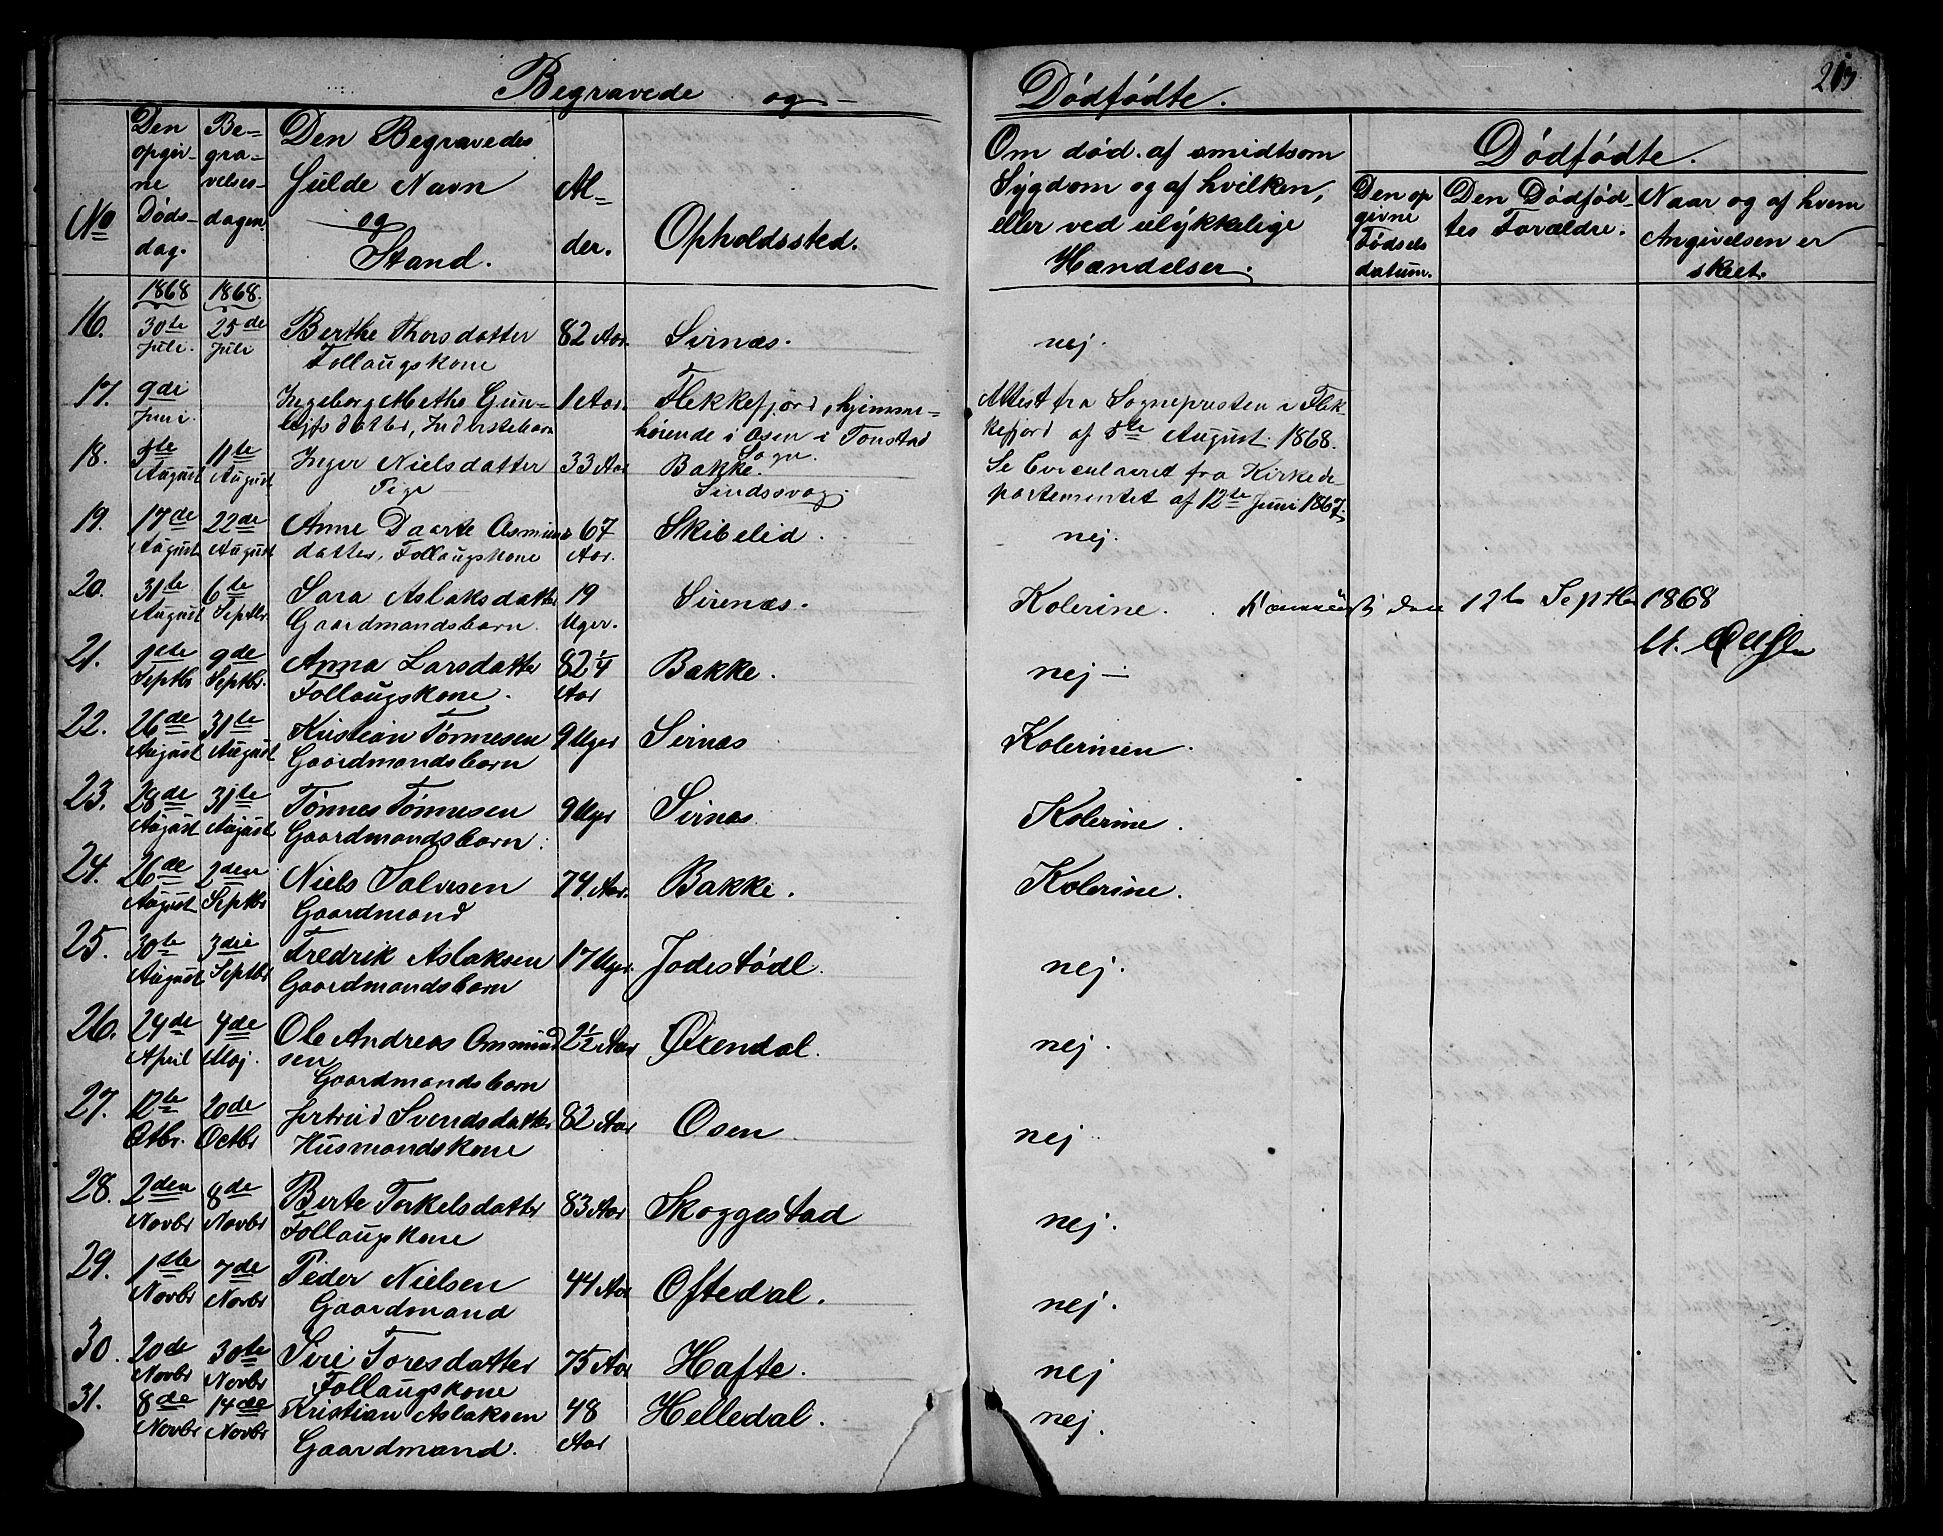 Begravede og Dødfødte.
213
No
Den opgivne Dødsdag.
Begravelsesdagen
Den Begravedes
Fulde Navn
og
Stand.
Alder.
Opholdssted.
Om død af smidtsom
Sygdom og af hvilken,
eller ved ulykkelige
Hændelser.
Dødfødte.
Den opgivne Fødselsdatum.
Den Dødfødtes Forældre.
Naar og af hvem Angivelsen er skeet.
1868 1868.
16. 30te Juli. 25de Juli Berthe Thorsdatter 82 Aar. Sirnæs. nej.
Follaugskone
17. 9de Juni. Ingeborg Methe Gun- 1 Aar. Flekkefjord, hjemme- Attest fra Sognepresten i Flek-
leifsdatter, Inderstebarn hørende i Osen i Tonstad Sogn. kefjord af 8te August 1868.
18. 5te August 11te August Inger Nielsdatter 33 Aar Bakke. Se Circulæret fra Kirkede-
Pige Sindssvag. partementet af 12te Juni 1867.
19. 17de August 22de August Anne Daarte Asmunds 67 Aar. Skibelid. nej.
datter, Follaugskone
20. 31te August 6te Septbr. Sara Aslaksdatter 19 Uger. Sirenæs. Kolerine. den 12te Septbr 1868
Gaardmandsbarn.
21. 1ste Septbr 9de Septbr. Anna Larsdatter 82 1/4 Aar Bakke. nej –
Follaugskone.
22. 26de August 31te August Kristian Tønnesen 9 Uger Sirnæs Kolerinen.
Gaardmandsbarn
23. 28de August 31te August Tønnes Tønnesen 9 Uger Sirnæs Kolerine.
Gaardmandsbarn.
24. 26de August 2den Septbr Niels Salvesen 74. Aar. Bakke. Kolerine.
Gaardmand
25. 30te August 3die Septbr Fredrik Aslaksen 17 Uger. Jodestødl. nej.
Gaardmandsbarn
26. 24de April 4de Maj. Ole Andreas Osmund 2 1/2 Aar Øxendal. nej.
sen
Gaardmandsbarn
27. 12te Octbr. 20de Octbr Jertrud Svendsdatter 82 Aar Osen nej.
Husmandskone
28. 2den Novbr 8de Novbr Berte Torkelsdatter 83 Aar Skoggestad nej.
Follaugskone
29. 1ste Novbr 7de Novbr Peder Nielsen 44 Aar Oftedal. nej.
Gaardmand
30. 20de Novbr 30te Novbr Siri Toresdatter 75 Aar Hafte. nej
Follaugskone
31. 8de Novbr 14de Novbr Kristian Aslaksen 48 Aar Helledal. nej.
Gaardmand.